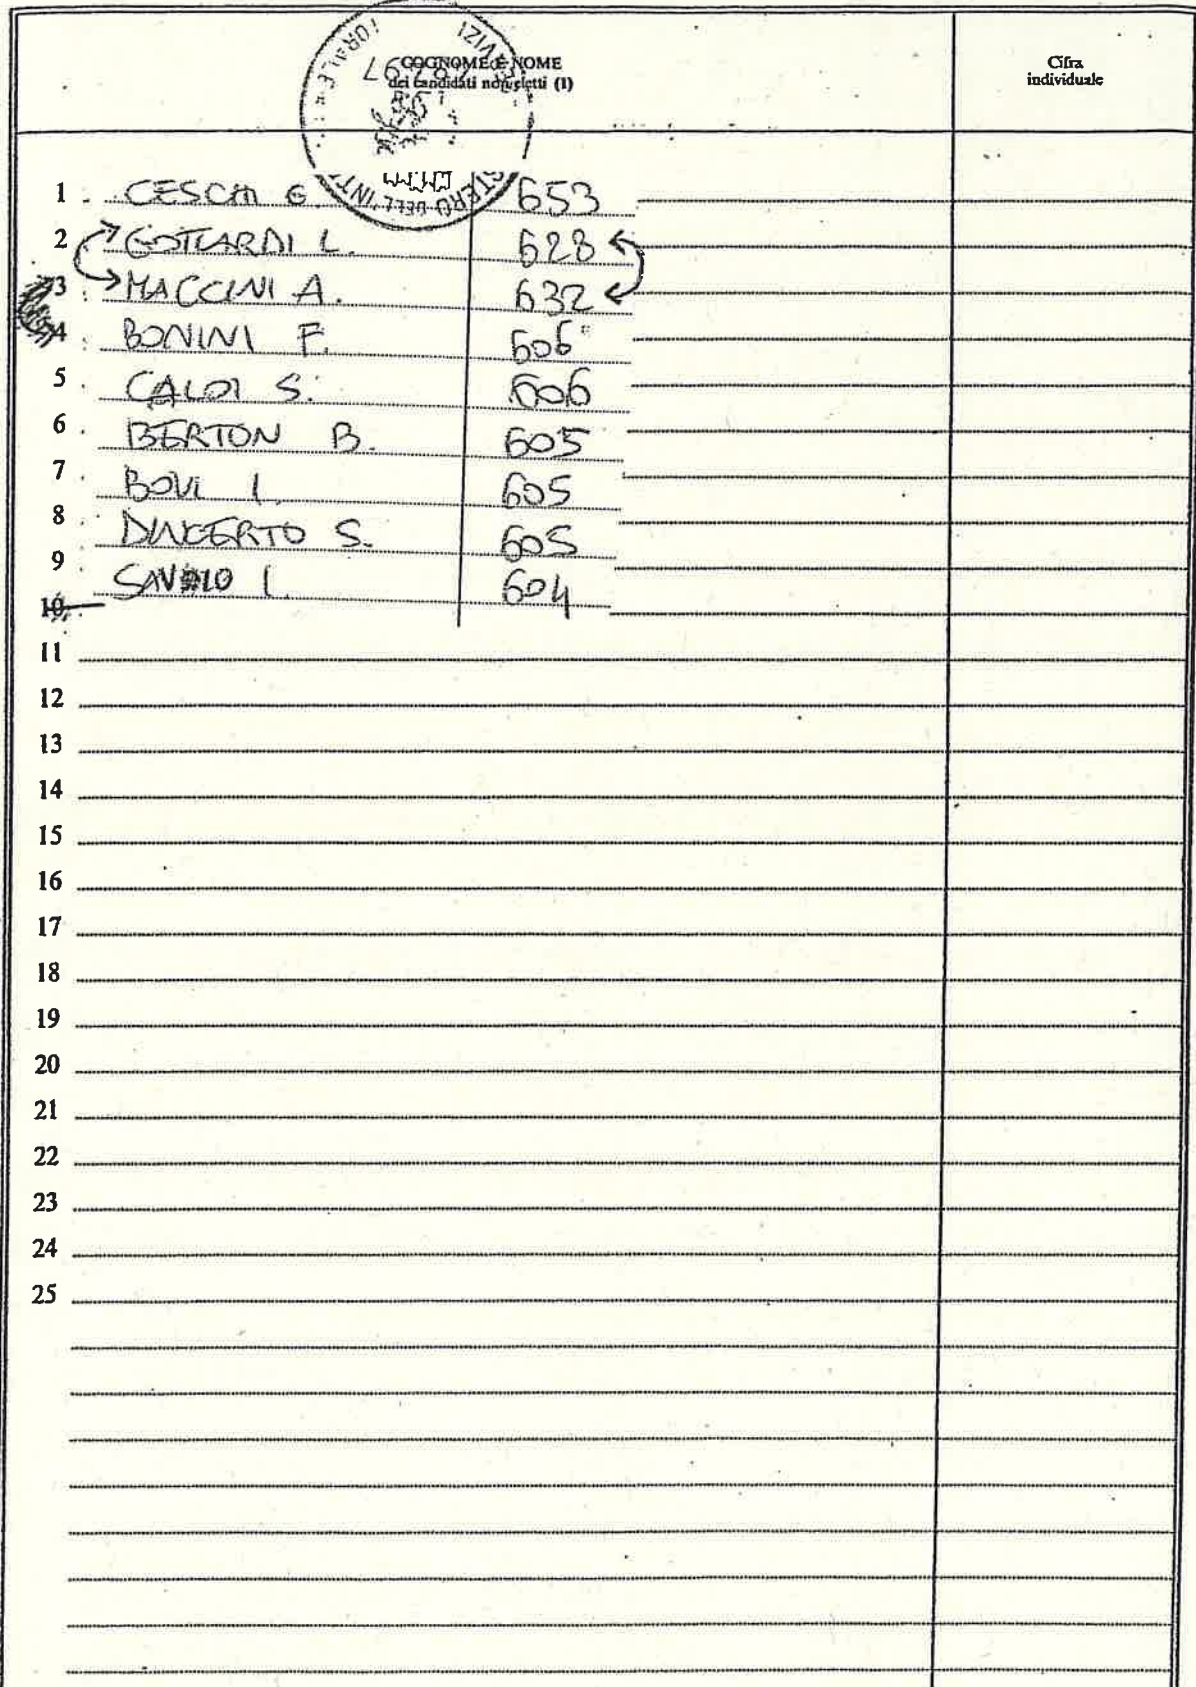 COGNOME E NOME
dei candidati non eletti (1)
Cifra
individuale
1 CESCHI G 653
2 GOTTARDI L. 628
3 MACCINI A. 632
4 BONINI F. 606
5 CALDI S. 606
6 BERTON B. 605
7 BOVI I. 605
8 S. 605
9 SAVOIO I. 604
10
11
12
13
14
15
16
17
18
19
20
21
22
23
24
25